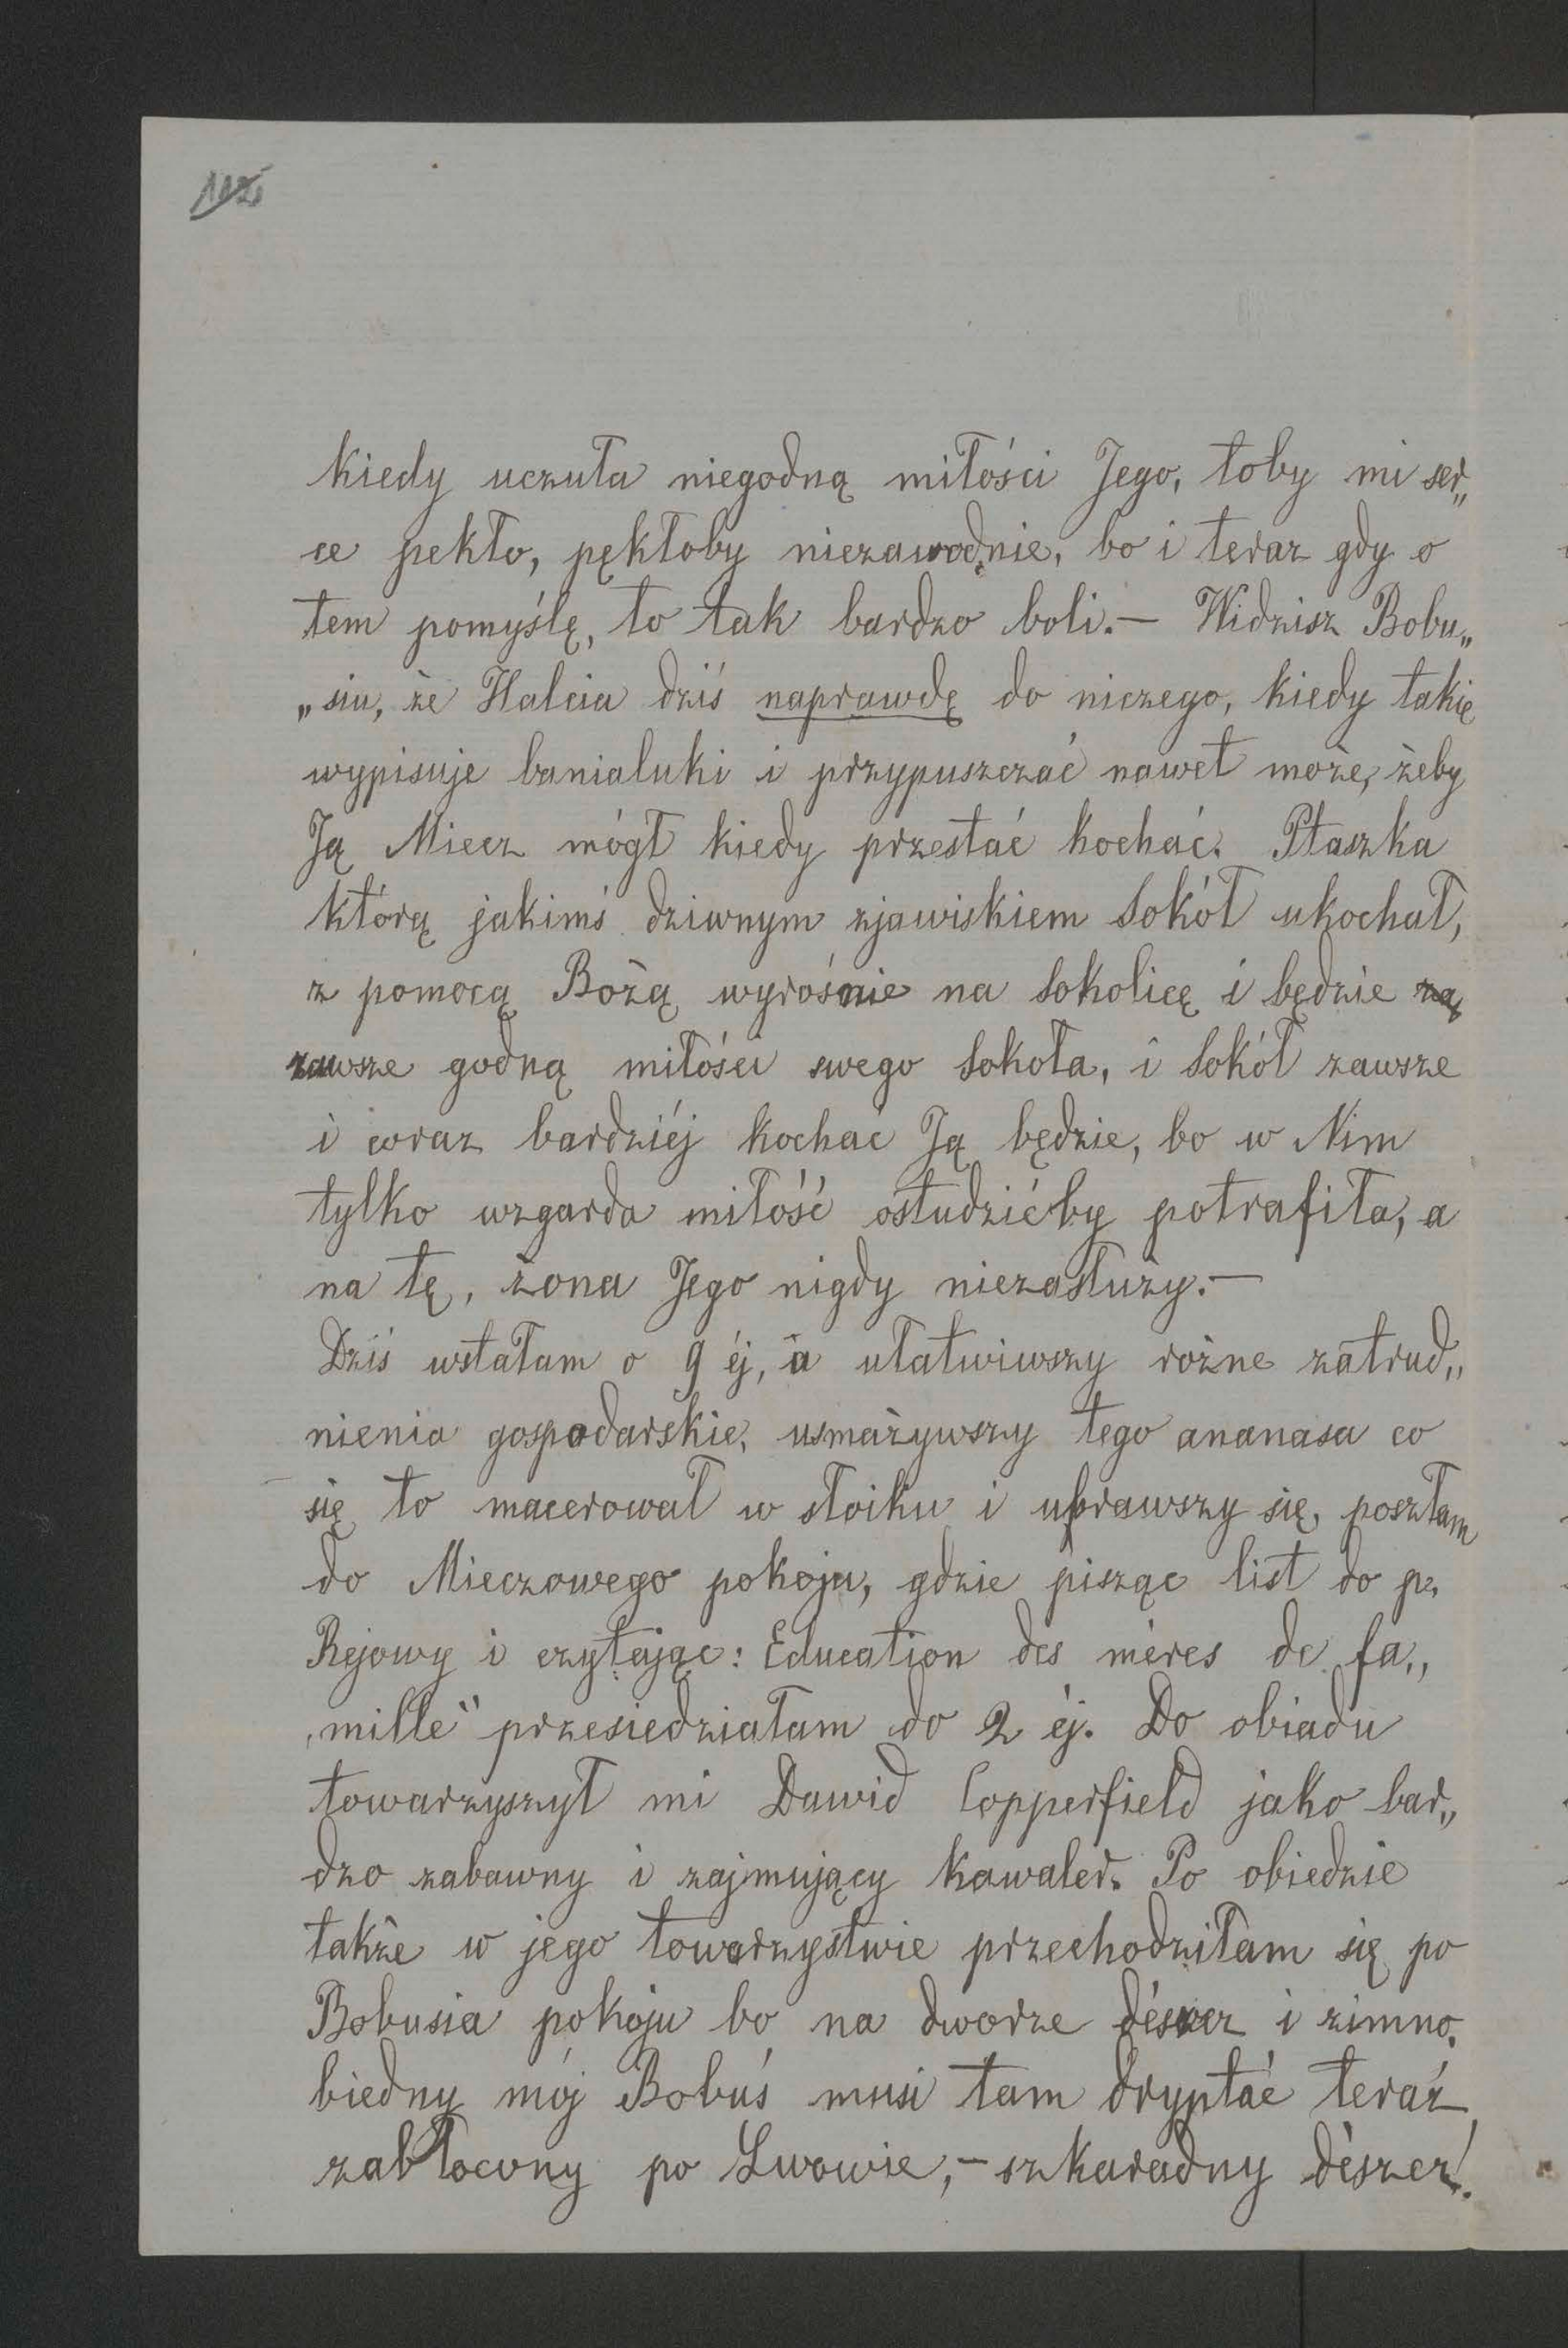 kiedy uczuła niegodną miłości Jego, toby mi ser„
ce pękło, pękłoby niezawodnie, bo i teraz gdy o
tem pomyślę, to tak bardzo boli.— Widzisz Bobu„
„siu, że Halcia dziś naprawdę do niczego, kiedy takie
wypisuje banialuki i przypuszczać nawet może, żeby
Ją Miecz mógł kiedy przestać kochać. Ptaszka
którą jakimś dziwnym zjawiskiem Sokół ukochał,
z pomocą Bożą wyrośnie na Sokolicę i będzie za
zawsze godną miłości swego Sokoła, i Sokół zawsze
i coraz bardziéj kochać Ją będzie, bo w Nim
tylko wzgarda miłość ostudzićby potrafiła, a
na tę, żona Jego nigdy niezasłuży.—
Dziś wstałam o 9 éj, a ułatwiwszy rożne zatrud„
nienia gospodarskie, usmażywszy tego ananasa co
się to macerował w słoiku i ubrawszy się, poszłam
do Mieczowego pokoju, gdzie pisząc list do p.
Rejowy i czytając: Education des mères de fa„
„mille" przesiedziałam do 2 éj. Do obiadu
towarzyszył mi Dawid Copperfield jako bar„
dzo zabawny i zajmujący kawaler. Po obiedzie
także w jego towarzystwie przechodziłam się po
Bobusia pokoju bo na dworze dészcz i zimno,
biedny mój Bobuś musi tam dryptać teraz
zabłocony po Lwowie,— szkaradny dészcz!